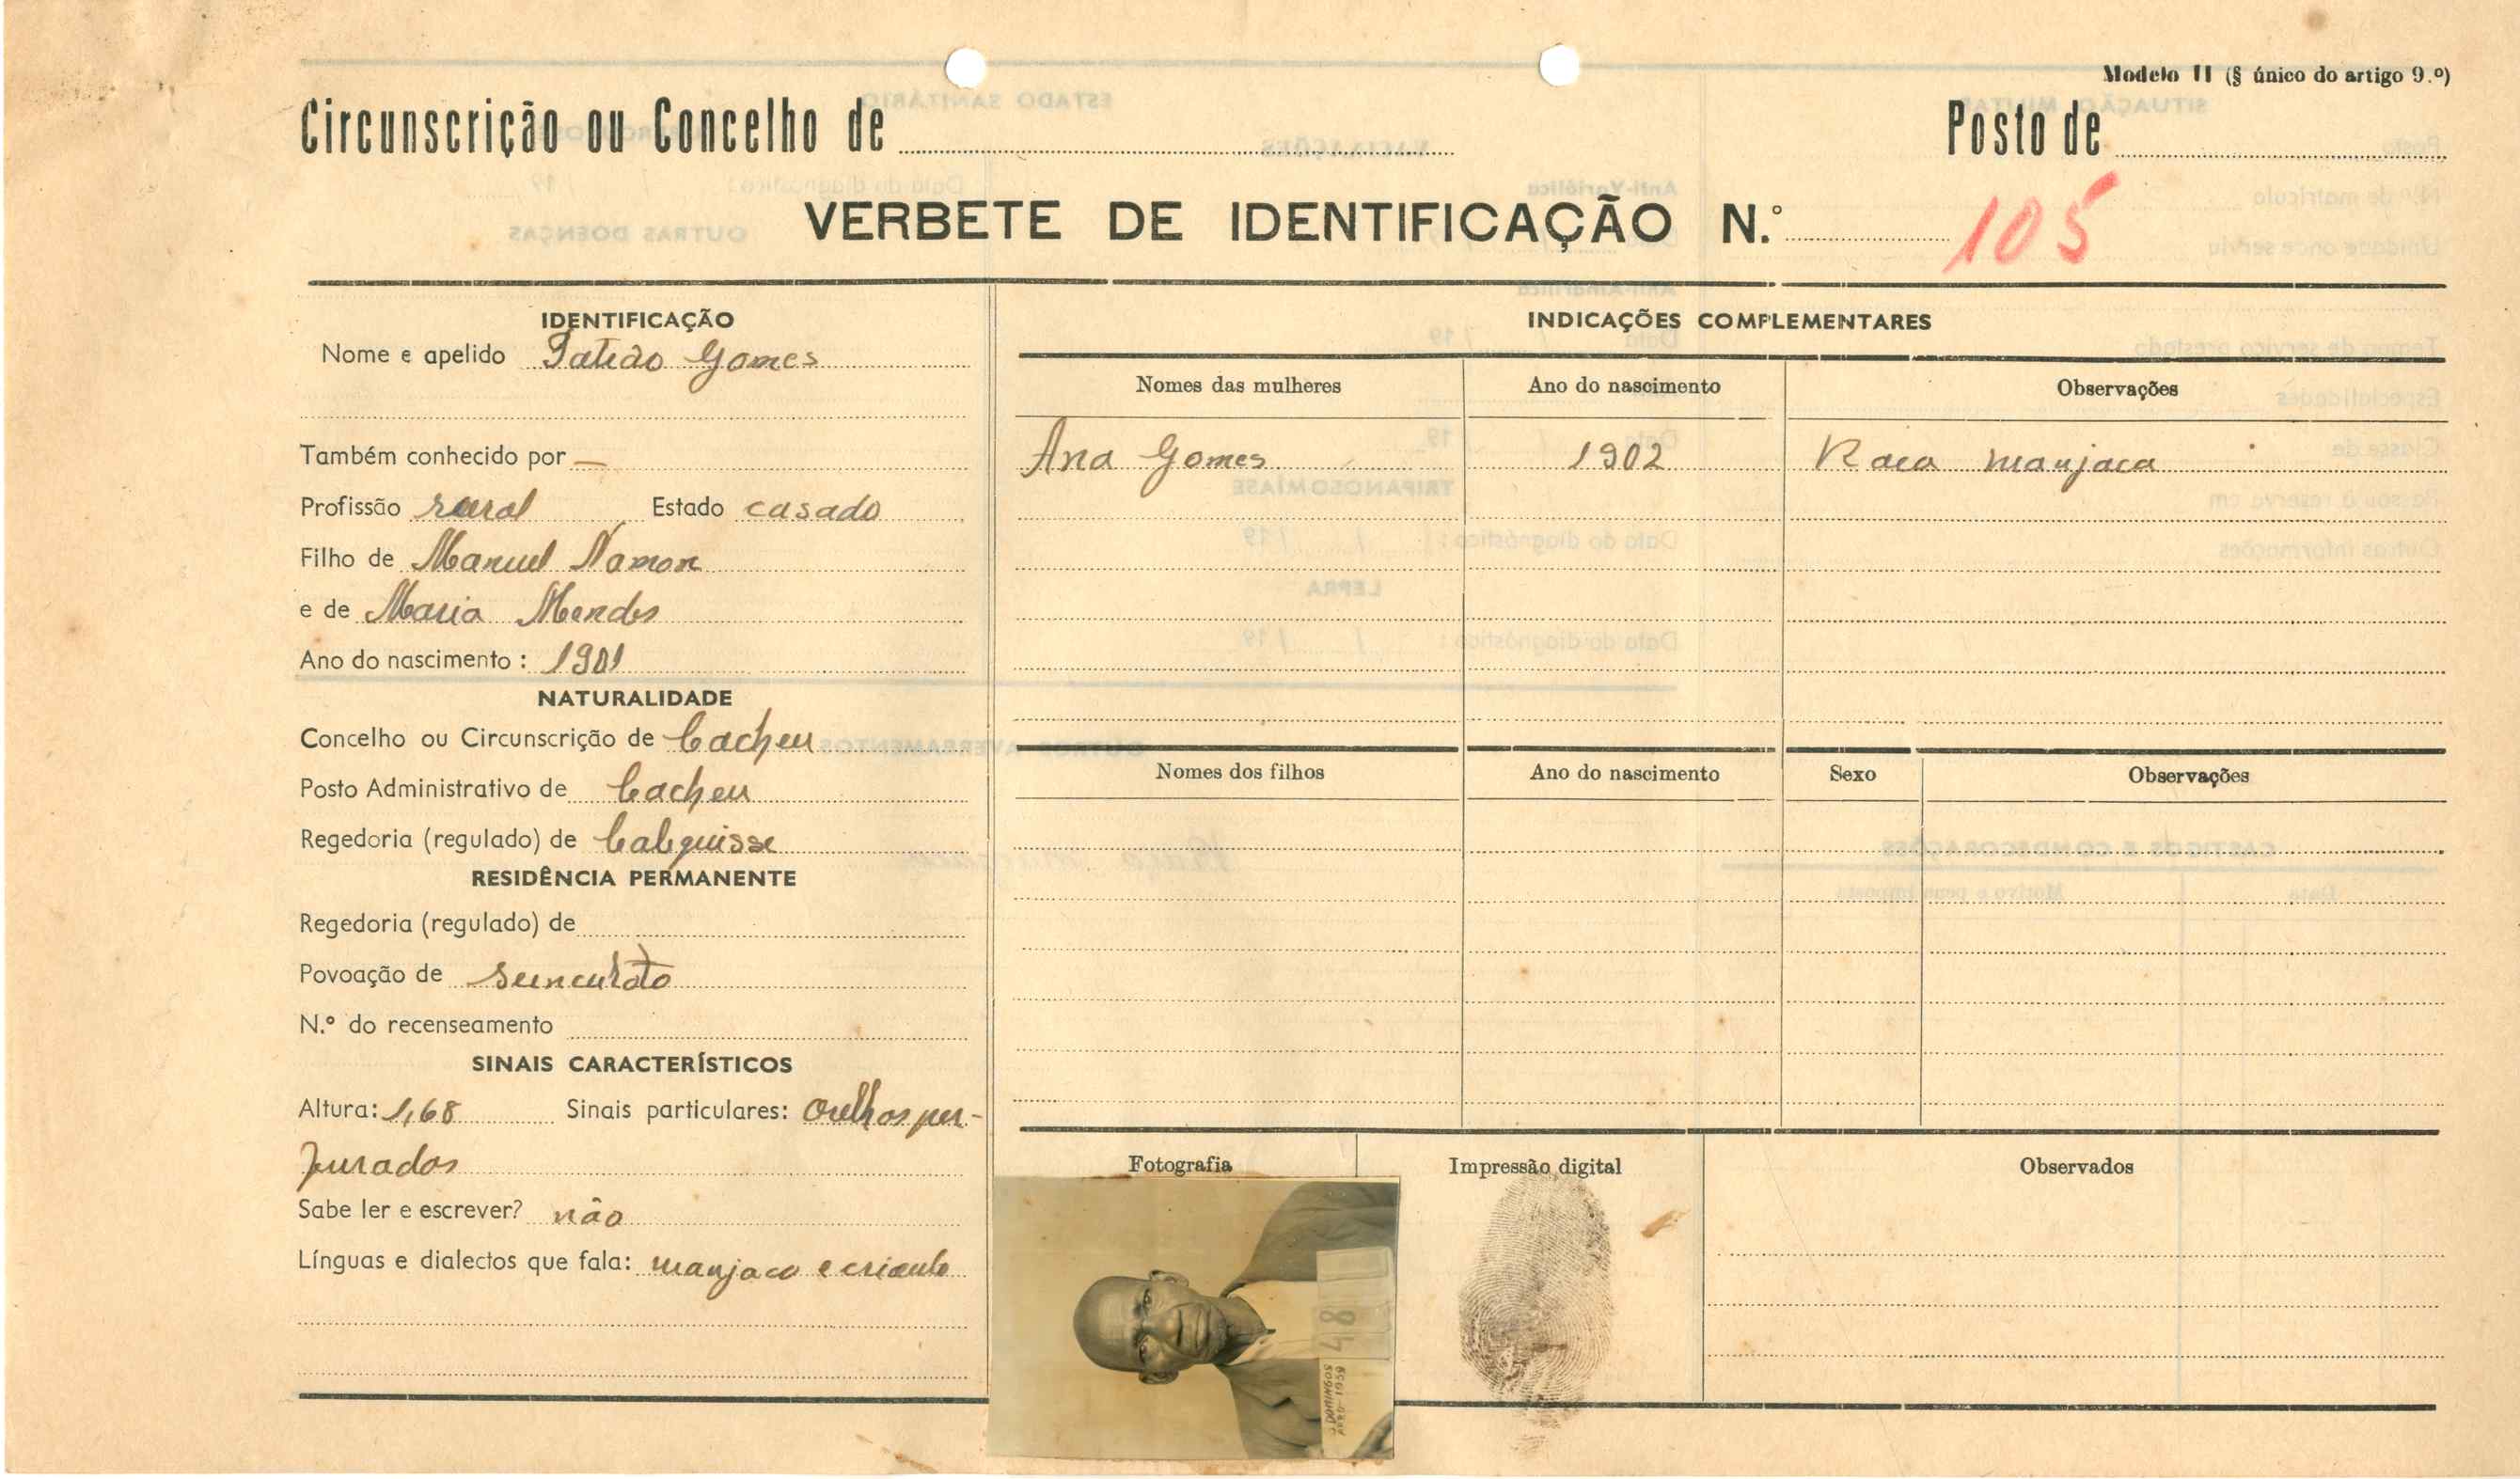 Modelo II (§ único do artigo 9.º)
Circunscrição ou Concelho de
Posto de
VERBETE DE IDENTIFICAÇÃO N.º 105
IDENTIFICAÇÃO
Nome e apelido Gomes
Também conhecido por —
Profissão rural Estado casado
Filho de Manuel Namon
e de Maria Mendes
Ano do nascimento : 1901
NATURALIDADE
Concelho ou Circunscrição de Cacheu
Posto Administrativo de Cacheu
Regedoria (regulado) de Calequisse
RESIDÊNCIA PERMANENTE
Regedoria (regulado) de
Povoação de
N.º do recenseamento
SINAIS CARACTERÍSTICOS
Altura: 1,68 Sinais particulares: Orelhas per-
furadas
Sabe ler e escrever? não
Línguas e dialectos que fala: manjaco e crioulo
INDICAÇÕES COMPLEMENTARES
Nomes das mulheres Ano do nascimento Observações
Ana Gomes 1902 Raça manjaca
Nomes dos filhos Ano do nascimento Sexo Observações
Fotografia Impressão digital Observados
48
DOMINGOS
1959